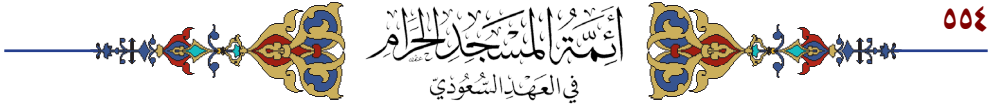 ٥٥٤
أَئِمَّةُ المَسْجِدِ الحَرَامِ
في العَهْدِ السُّعُودِيّ